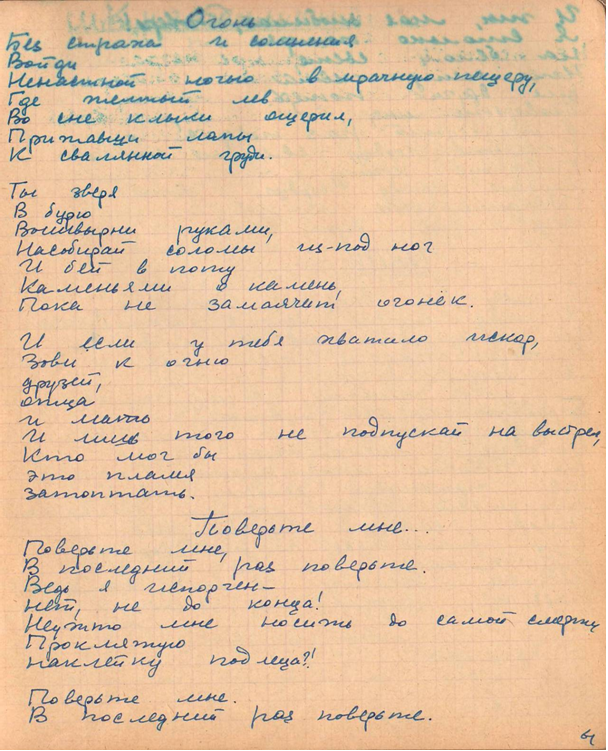 Огонь
Без страха и сомнения
Войди
Ненастной ночью в мрачную пещеру,
Где желтый лев
Во сне клыки ощерил,
Прижавши лапы
К свалянной груди.
Ты зверя
В бурю
Вышвырни руками,
Насобирай соломы из-под ног
И бей в поту
Каменьями о камень,
Пока не замаячит огонек.
И если у тебя хватило искор,
Зови к огню
друзей,
отца
и мать
И лишь того не подпускай на выстрел,
Кто мог бы
это пламя
затоптать.
Поверьте мне...
Поверьте мне,
В последний раз поверьте.
Ведь я испорчен—
нет, не до конца!
Неужто мне носить до самой смерти
Проклятую
наклейку подлеца?!
Поверьте мне.
В последний раз поверьте.